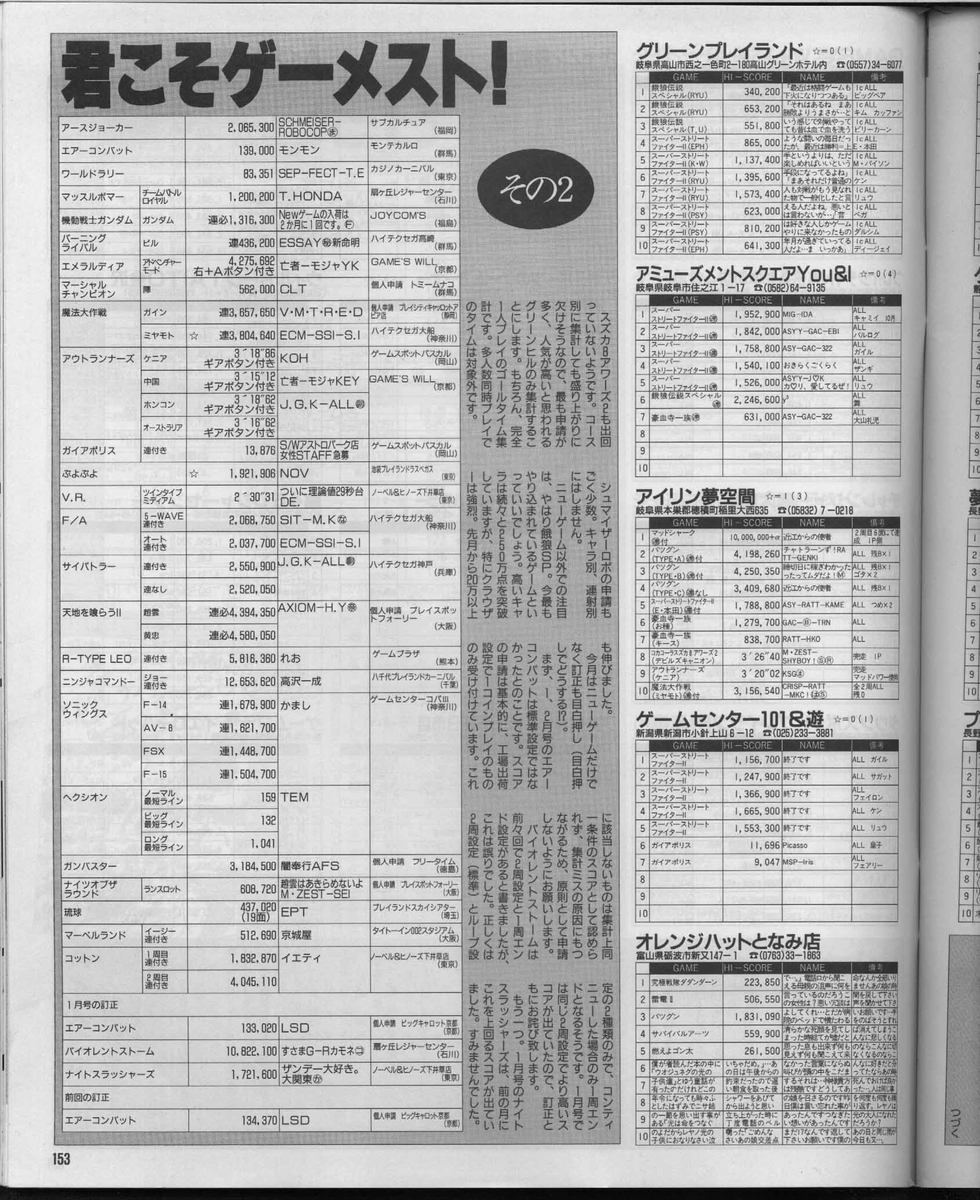 君こそゲーメスト!
その2
アースジョーカー 2,065,300 SCHMEISER-ROBOCOP サブカルチュア (福岡)
エアーコンバット 139,000 モンモン モンテカルロ (群馬)
ワールドラリー 83,351 SEP-FECT-T.E カジノカーニバル (東京)
マッスルボマー チームバトルロイヤル 1,200,200 T.HONDA 扇ヶ丘レジャーセンター (石川)
機動戦士ガンダム ガンダム 連必1,316,300 Newゲームの入荷は2か月に1回です。 JOYCOM'S (福島)
バーニングライバル ビル 連436,200 ESSAY 新命明 ハイテクセガ高崎 (群馬)
エメラルディア アドベンチャーモード 4,275,692 右+Aボタン付き 亡者ーモジャYK GAME'S WILL (京都)
マーシャルチャンピオン 陣 562,000 CLT 個人申請 トミームナコ (群馬)
魔法大作戦 ガイン 連3,657,650 V・M・T・R・E・D 個人申請 プレイシティキャロットアピア店 (静岡)
ミヤモト ☆ 連3,804,640 ECM-SSI-S.I ハイテクセガ大船 (神奈川)
アウトランナーズ ケニア 3´18˝86 ギアボタン付き KOH ゲームスポットパスカル (岡山)
中国 3´15˝12 ギアボタン付き 亡者ーモジャKEY GAME'S WILL (京都)
ホンコン 3´18˝62 ギアボタン付き J.G.K-ALL ゲームスポットパスカル (岡山)
オーストラリア 3´16˝62 ギアボタン付き
ガイアポリス 連付き 13,876 S/Wアストロパーク店女性STAFF急募 ゲームスポットパスカル (岡山)
ぷよぷよ ☆ 1,921,906 NOV 池袋プレイランドラスベガス (東京)
V.R. ツインタイプミディアム 2´30˝31 ついに理論値29秒台DE. ノーベル&ヒノーズ下井草店 (東京)
F/A 5-WAVE連付き 2,068,750 SIT-M.K ハイテクセガ大船 (神奈川)
オート連付き 2,037,700 ECM-SSI-S.I
サイバトラー 連付き 2,550,900 J.G.K-ALL ハイテクセガ神戸 (兵庫)
連なし 2,520,050
天地を喰らうII 趙雲 連必4,394,350 AXIOM-H.Y 個人申請 プレイスポットフォーリー (大阪)
黄忠 連必4,580,050
R-TYPE LEO 連付き 5,816,360 れお ゲームプラザ (熊本)
ニンジャコマンドー ジョー連付き 12,653,620 高沢一成 八千代プレイランドカーニバル (千葉)
ソニックウィングス F-14 連1,679,900 かまし ゲームセンターコパIII (神奈川)
AV-8 連1,621,700
FSX 連1,448,700
F-15 連1,504,700
ヘクシオン ノーマル最短ライン 159 TEM
ビッグ最短ライン 132
ロング最短ライン 1,041
ガンバスター 3,184,500 闇奉行AFS 個人申請 フリータイム (徳島)
ナイツオブザラウンド ランスロット 608,720 趙雲はあきらめないよM・ZEST-SEI 個人申請 プレイスポットフォーリー (大阪)
琉球 437,020 (19面) EPT プレイランドスカイシアター (埼玉)
マーベルランド イージー連付き 512,690 京城屋 タイトーイン002スタジアム (大阪)
コットン 1周目連付き 1,832,870 イエティ ノーベル&ヒノーズ下井草店 (東京)
2周目連付き 4,045,110
1月号の訂正
エアーコンバット 133,020 LSD 個人申請 ビッグキャロット京都 (京都)
バイオレントストーム 10,822,100 すさまG-Rカモネコ 扇ヶ丘レジャーセンター (石川)
ナイトスラッシャーズ 1,721,600 ザンデー大好き。大関東 ノーベル&ヒノーズ下井草店 (東京)
前回の訂正
エアーコンバット 134,370 LSD 個人申請 ビッグキャロット京都 (京都)
スズカ8アワーズ2も出回
っていないようです。コース
別に集計しても盛り上がりに
欠けそうなので、最も申請が
多く、人気が高いと思われる
グリーンヒルのみ集計するこ
とにします。もちろん、完全
一人プレイのゴールタイム集
計です。多人数同時プレイで
のタイムは対象外です。
シュマイザーロボの申請も
ごく少数。キャラ別、連射別
にはしません。
ニューゲーム以外での注目
は、やはり餓狼SP。今最も
やり込まれているゲームとい
っていいでしょう。高いキャ
ラは続々と250万点を突破
していますが、特にクラウザ
ーは強烈。先月から20万以上
も伸びました。
今月はニューゲームだけで
なく訂正も目白押し(目白押
してどうする!?)。
まず、1、2月号のエアー
コンバットは標準設定ではな
かったとのことです。スコア
の申請は基本的に、工場出荷
設定で1コインプレイのもの
のみ受け付けています。これ
に該当しないものは集計上同
一条件のスコアとして認めら
れず、集計ミスの原因にもつ
ながるため、原則として申請
しないようにお願いします。
バイオレントストームは
前々回で2周設定と1周エン
ド設定があると書きましたが、
これは誤りでした。正しくは
2周設定(標準)とループ設
定の2種類のみで、コンティ
ニューした場合のみ1周エン
ドとなるそうです。1月号で
は同じ2周設定でより高いス
コアが出ていたので、訂正と
もにお詫び致します。
もう一つ。1月号のナイト
スラッシャーズは、前の月に
これを上回るスコアが出てい
ました。すみませんでした。
グリーンプレイランド ☆=0(1)
岐阜県高山市西之一色町2-180高山グリーンホテル内 ☎(0557)34-6077
GAME HI-SCORE NAME 備考
1 餓狼伝説スペシャル(RYU) 340,200 「最近は格闘ゲームも下火になりつつある」 1c ALL ビッグベア
2 餓狼伝説スペシャル(RYU) 653,200 「それはあるね まあ勝敗よりうまさが…と 1c ALL キム カッファン
3 餓狼伝説スペシャル(T,U) 551,800 いう感じで対戦やっても昔は血で血を洗う 1c ALL ビリーカーン
4 スーパーストリートファイターII(EPH) 865,000 ような闘いの毎日だったが、最近は勝利=上 1c ALL E・本田
5 スーパーストリートファイターII(K・W) 1,137,400 手というよりは、ただ楽しめればいいという 1c ALL M・バイソン
6 スーパーストリートファイターII(RYU) 1,395,600 手段になってるよね」「まあそれだけ普通の 1c ALL ケン
7 スーパーストリートファイターII(RYU) 1,573,400 人も対戦がもう見なれた物で一般化したと言 1c ALL リュウ
8 スーパーストリートファイターII(PSY) 623,000 える人だよね。悪いとは言わないが…」昔 1c ALL ベガ
9 スーパーストリートファイターII(PSY) 810,200 は好きな人しかゲームやりに来なかったもの 1c ALL ダルシム
10 スーパーストリートファイターII(EPH) 641,300 年月が過ぎていってる人だよ…ま いっかぁ」 1c ALL ディージェイ
アミューズメントスクエアYou&I ☆=0(4)
岐阜県岐阜市住之江1-17 ☎(0582)64-9135
GAME HI-SCORE NAME 備考
1 スーパーストリートファイターII 1,952,900 MIG-IDA ALL キャミイ 10月
2 スーパーストリートファイターII 1,842,000 ASYY-GAC-EBI ALL バルログ
3 スーパーストリートファイターII 1,758,800 ASY-GAC-322 ALL ガイル
4 スーパーストリートファイターII 1,540,100 おきらくごくらく ALL ザンギ
5 スーパーストリートファイターII 1,526,000 ASYY-J♡K お♡り、愛してるぜ! ALL リュウ
6 餓狼伝説スペシャル 2,246,600 y³ ALL 舞
7 豪血寺一族 631,000 ASY-GAC-322 ALL 大山礼児
8
9
10
アイリン夢空間 ☆=1(3)
岐阜県本巣郡穂積町稲里大西635 ☎(05832)7-0218
GAME HI-SCORE NAME 備考
1 マッドシャーク 連付 10,000,000+α 近江からの使者 2周目6面にて達成 1P側
2 バツグン(TYPE・A)連付 4,198,260 チャトラーンず!RATT-GENKI! ALL 残B×1
3 バツグン(TYPE・B)連付 4,250,350 締切日に稼ぎまわったってムダだよ! ALL 残B×1 ゴタ×2
4 バツグン(TYPE・C)連なし 3,409,680 近江からの使者 ALL 残B×1
5 スーパーストリートファイターII(E・本田) 1,788,800 ASY-RATT-KAME ALL つめ×2
6 豪血寺一族(お種) 1,279,700 GAC-TRN ALL
7 豪血寺一族(キース) 838,700 RATT-HKO ALL
8 コカコーラスズカ8アワーズ2(デビルズキャニオン) 3´26˝40 M・ZEST-SHYBOY! 完走 1P
9 アウトランナーズ(ケニア) 3´20˝02 KSG 完走 マッドパワー使用
10 魔法大作戦(ミヤモト) 3,156,540 CRISP-RATT-MKC! 全2周ALL 残0
ゲームセンター101&遊 ☆=0(1)
新潟県新潟市小針上山6-12 ☎(025)233-3881
GAME HI-SCORE NAME 備考
1 スーパーストリートファイターII 1,156,700 終了です ALL ガイル
2 スーパーストリートファイターII 1,247,900 終了です ALL サガット
3 スーパーストリートファイターII 1,366,900 終了です ALL フェイロン
4 スーパーストリートファイターII 1,665,900 終了です ALL ケン
5 スーパーストリートファイターII 1,553,300 終了です ALL リュウ
6 ガイアポリス 11,696 Picasso ALL 皇子
7 ガイアポリス 9,047 MSP-Iris ALL フェアリー
8
9
10
オレンジハットとなみ店
富山県砺波市新又147-1 ☎(0763)33-1863
GAME HI-SCORE NAME 備考
1 究極戦隊ダダンダーン 223,850
2 雷電II 506,550
3 バツグン 1,831,090
4 サバイバルアーツ 559,900
5 燃えよゴン太 261,500
6
7
8
9
10
つづく
153